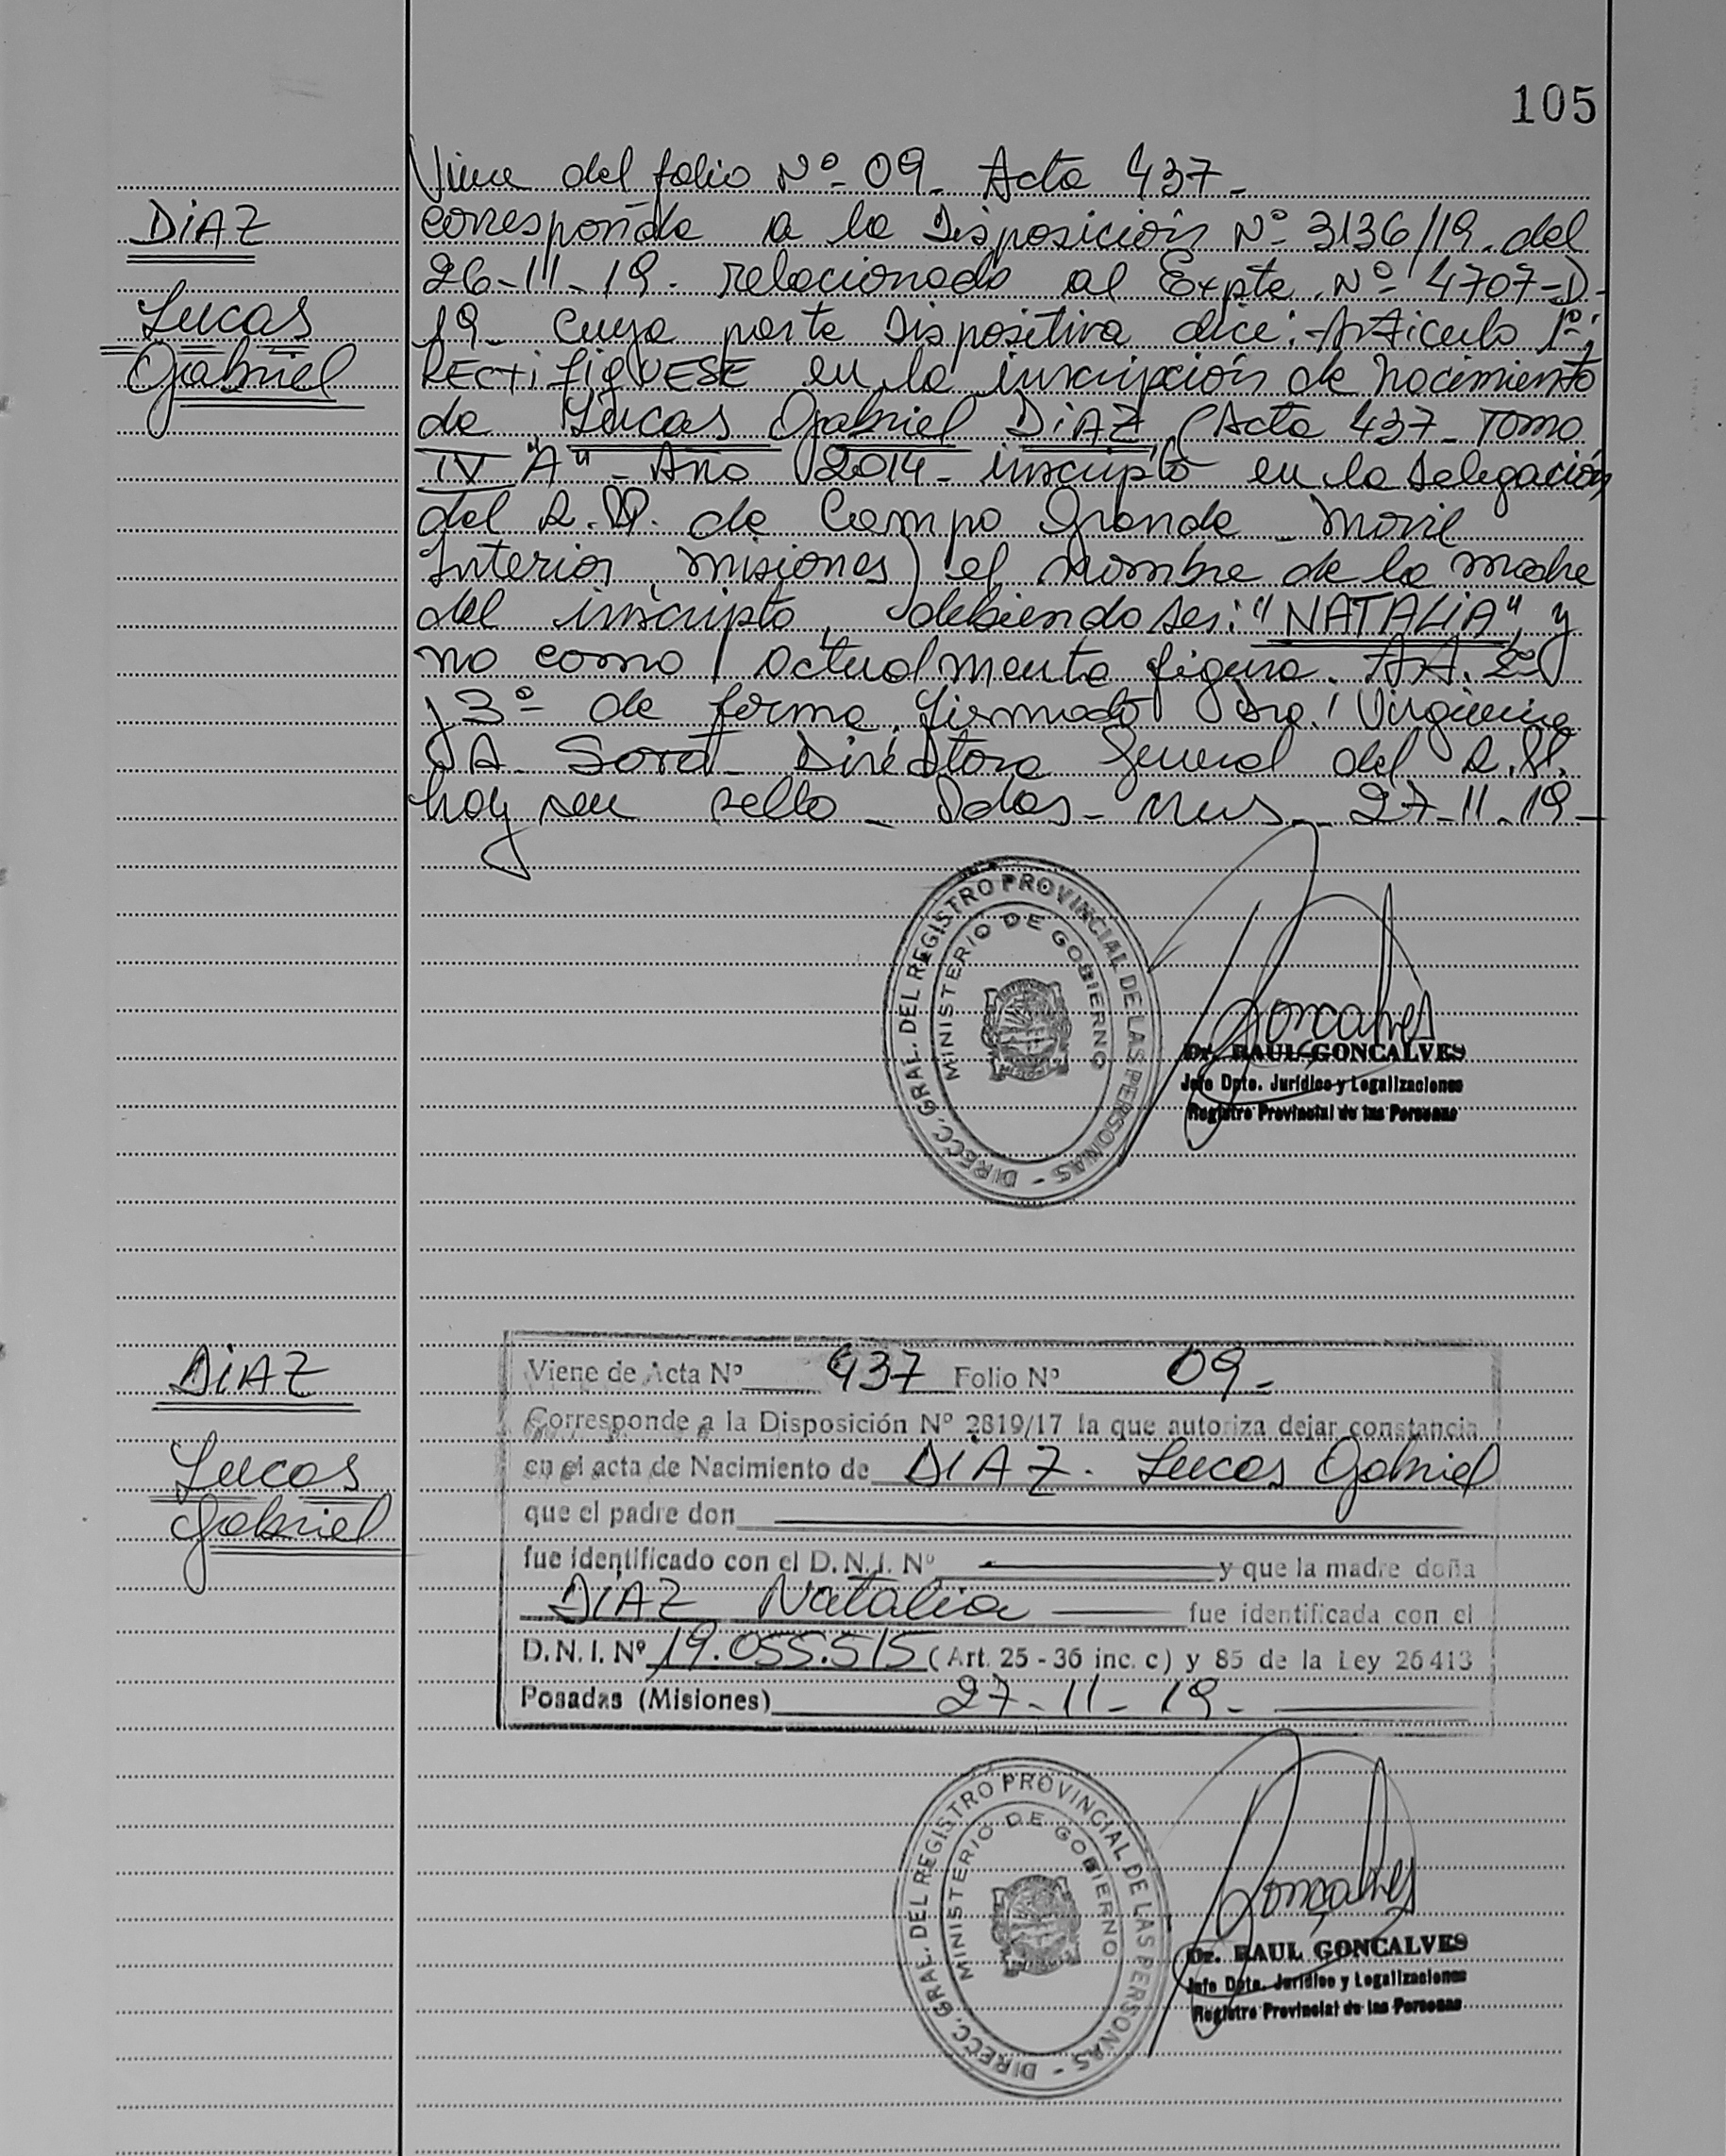 105
Viene del folio Nº 09. Acta 437-
DIAZ
corresponde a la Disposición Nº 3136/19. del
26-11-19. relacionado al Expte. Nº 4707-D-
Lucas
19- cuya parte Dispositiva dice: Articulo 1º:
Gabriel
RECTifiqUESE en la inscripción de nacimiento
de Lucas Gabriel DIAZ (Acta 437- Tomo
IV "A" - Año 2014- inscripto en la Delegación
del R.P. de Campo Grande - Movil
Interior, misiones) el nombre de la madre
del inscripto, debiendo ser: "NATALIA" y
no como actualmente figura. AA. 2º
y 3º de forma, firmado Dra.
A. Sora- Directora General del R.P.
hay un sello - Pdas- Mnes- 27-11-19-
DIRECC. GRAL. DEL REGISTRO PROVINCIAL DE LAS PERSONAS -
MINISTERIO DE GOBIERNO
Goncalves
Dr. RAUL GONCALVES
Jefe Dpto. Jurídico y Legalizaciones
Registro Provincial de las Personas
DIAZ
Viene de Acta Nº 437 Folio Nº 09-
Corresponde a la Disposición Nº 2819/17 la que autoriza dejar constancia
Lucas
en el acta de Nacimiento de DIAZ. Lucas Gabriel
Gabriel
que el padre don
fue identificado con el D.N.I. Nº y que la madre doña
DIAZ Natalia fue identificada con el
D.N.I. Nº 19.055.515 (Art. 25 - 36 inc. c) y 85 de la Ley 26413
Posadas (Misiones) 27-11-19-
DIRECC. GRAL. DEL REGISTRO PROVINCIAL DE LAS PERSONAS -
MINISTERIO DE GOBIERNO
Goncalves
Dr. RAUL GONCALVES
Jefe Dpto. Jurídico y Legalizaciones
Registro Provincial de las Personas